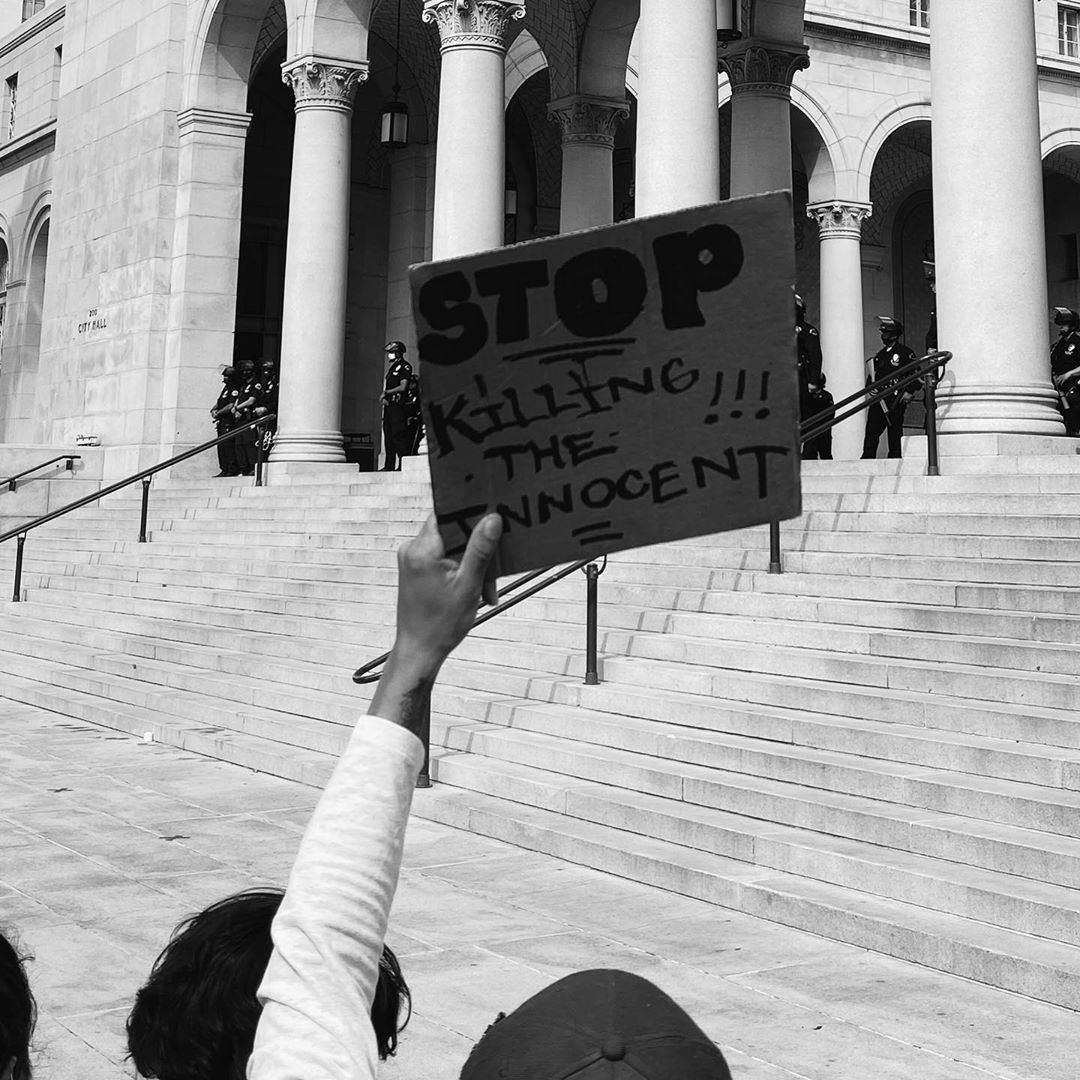 200
CITY HALL
STOP
KILLING!!!
THE
INNOCENT